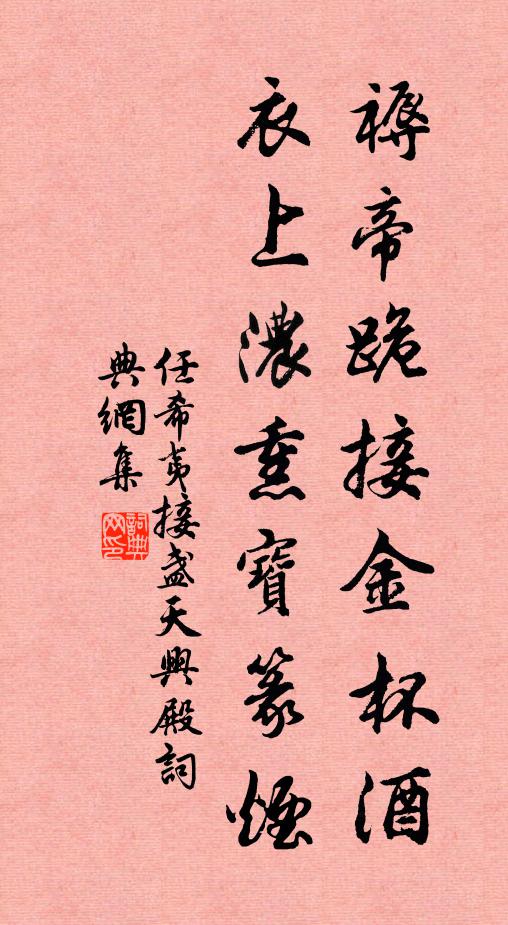 禪帝跪接金杯酒
衣上濃熏寶篆煙
任希夷接盞天興殿詞
典網集
詞典
網印